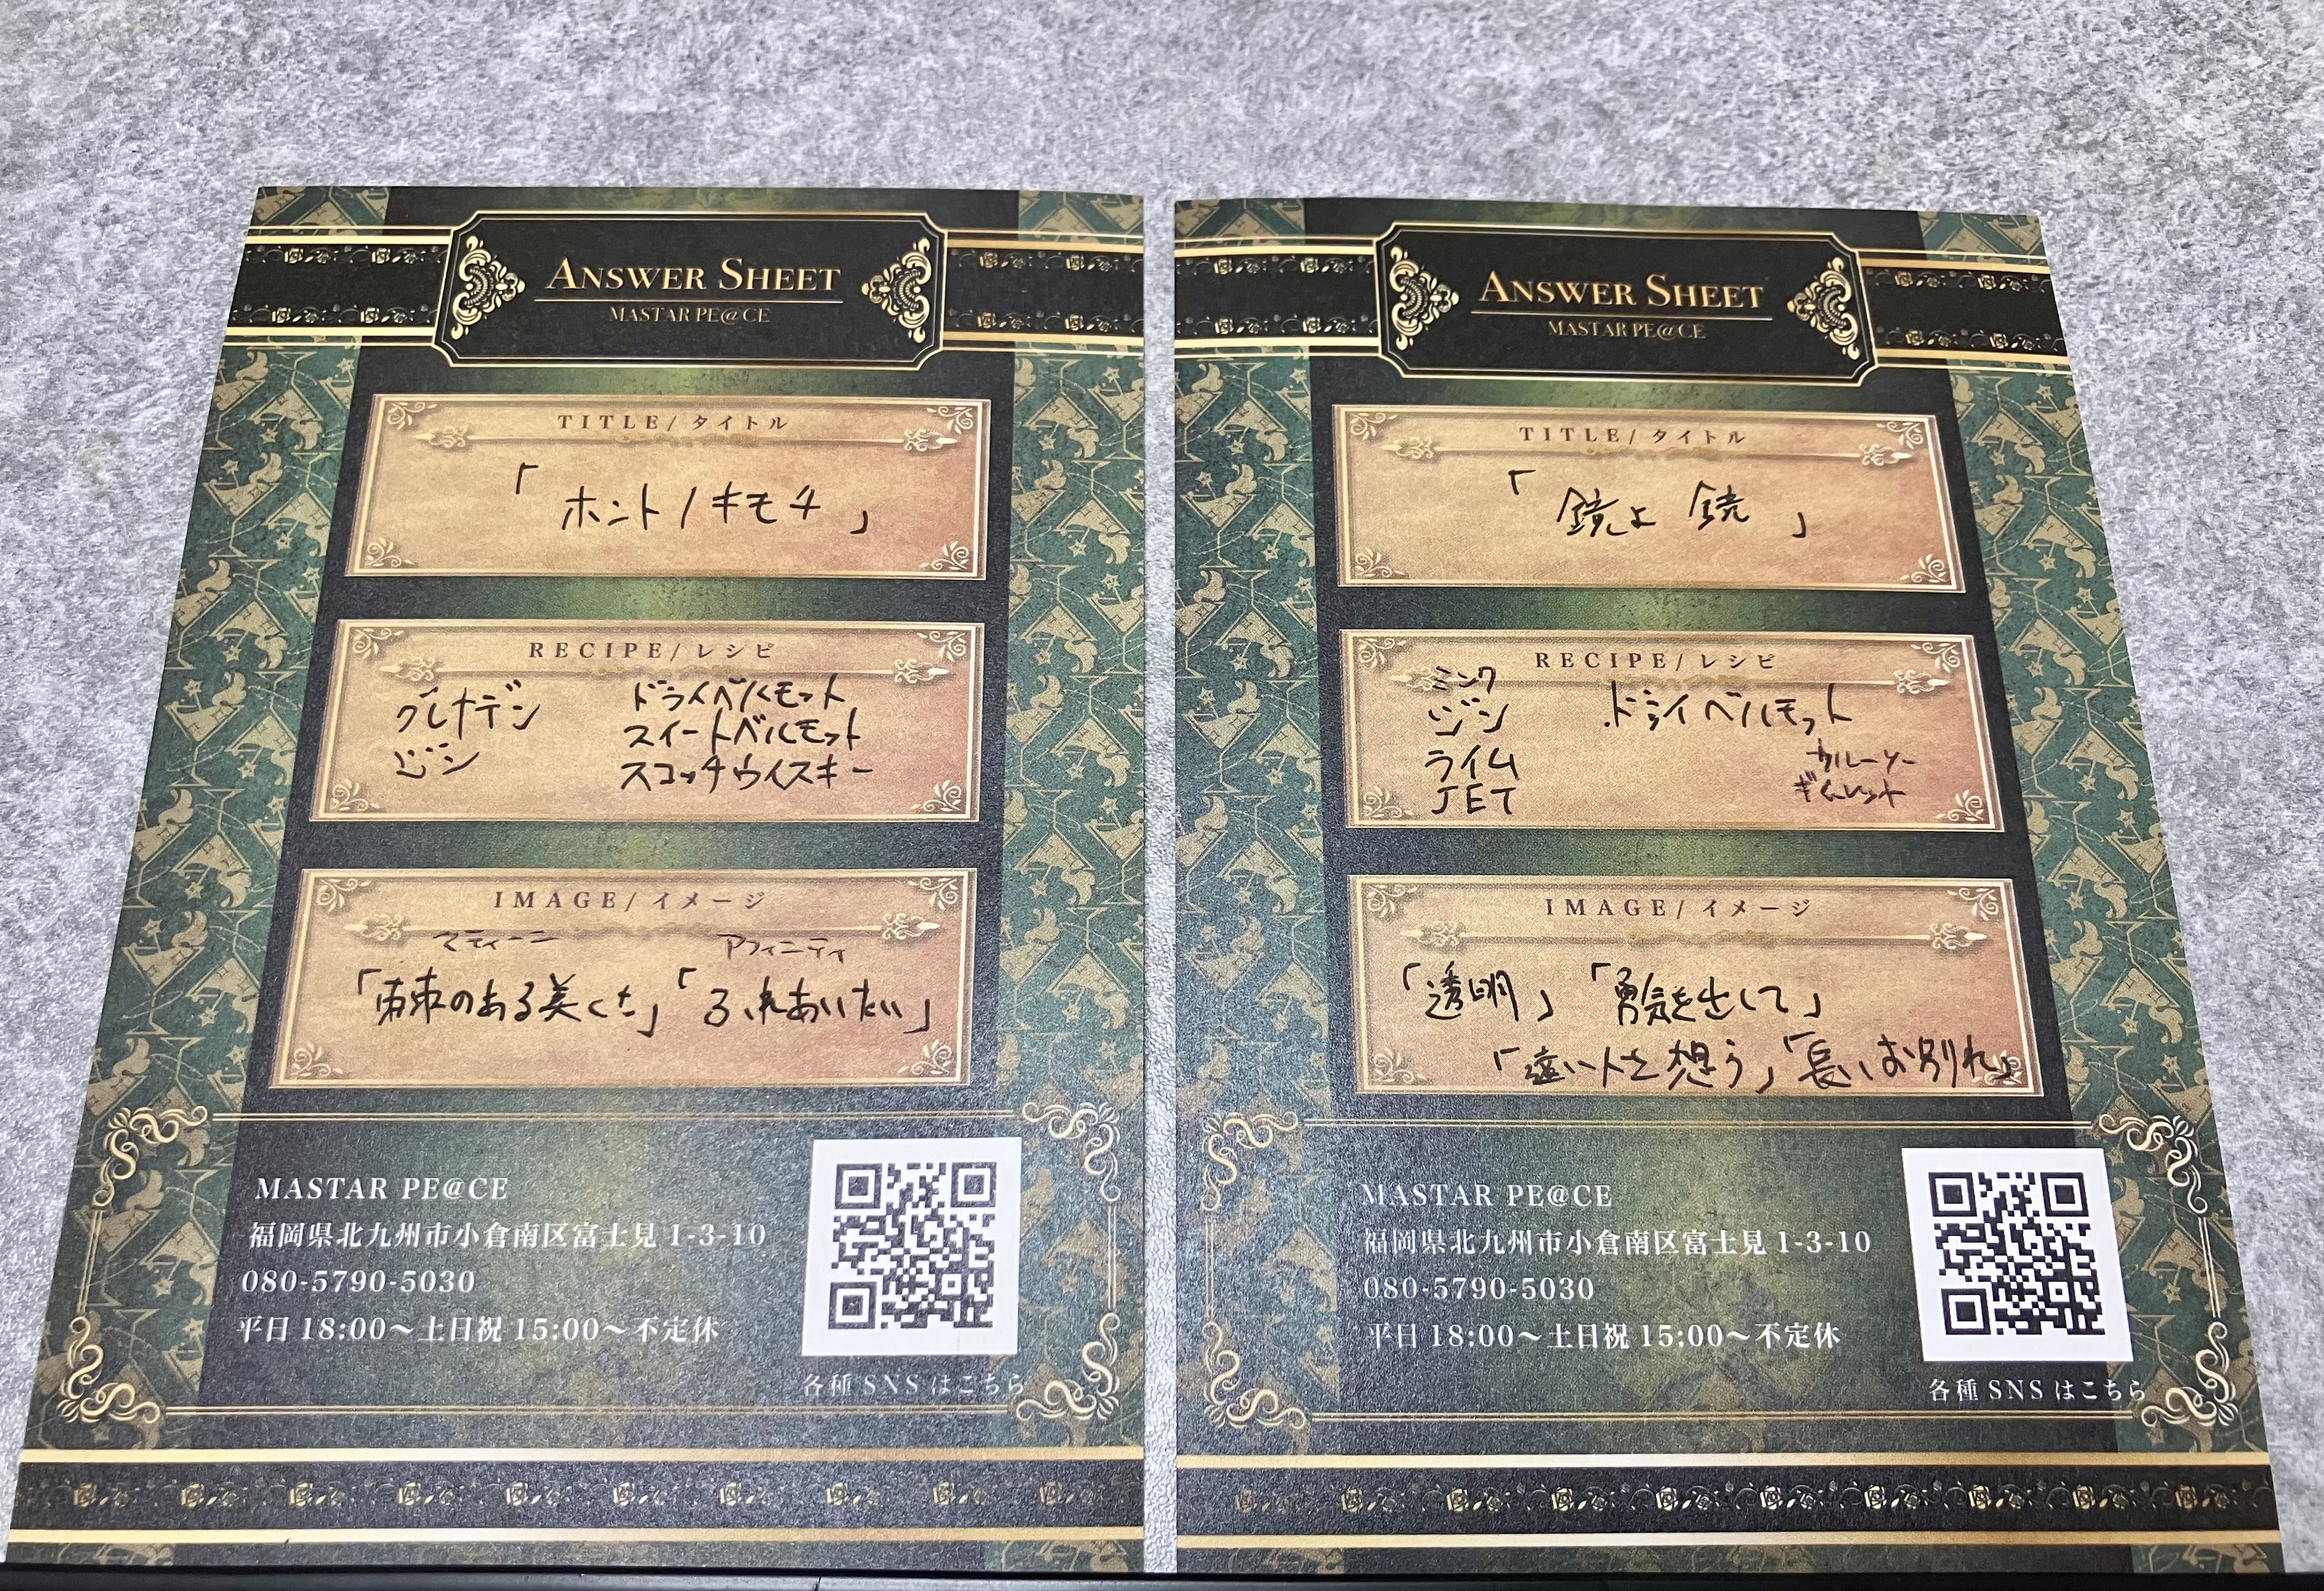 ANSWER SHEET
MASTAR PE@CE
TITLE/タイトル
「ホントノキモチ」
RECIPE/レシピ
グレナデン
ジン
ドライベルモット
スイートベルモット
スコッチウイスキー
IMAGE/イメージ
マティーニ
アフィニティ
「棘のある美しさ」「ふれあいたい」
MASTAR PE@CE
福岡県北九州市小倉南区富士見 1-3-10
080-5790-5030
平日 18:00～土日祝 15:00～不定休
各種 SNS はこちら
ANSWER SHEET
MASTAR PE@CE
TITLE/タイトル
「鏡よ 鏡」
RECIPE/レシピ
ミンク
ジン
ライム
JET
ドライベルモット
カルーソー
ギムレット
IMAGE/イメージ
「透明」「勇気を出して」
「遠い人を想う」「長いお別れ」
MASTAR PE@CE
福岡県北九州市小倉南区富士見 1-3-10
080-5790-5030
平日 18:00～土日祝 15:00～不定休
各種 SNS はこちら